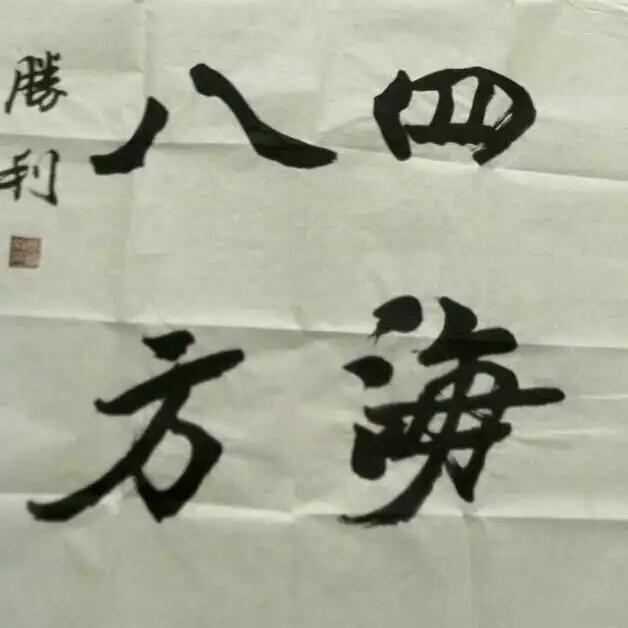 四海
八方
勝利